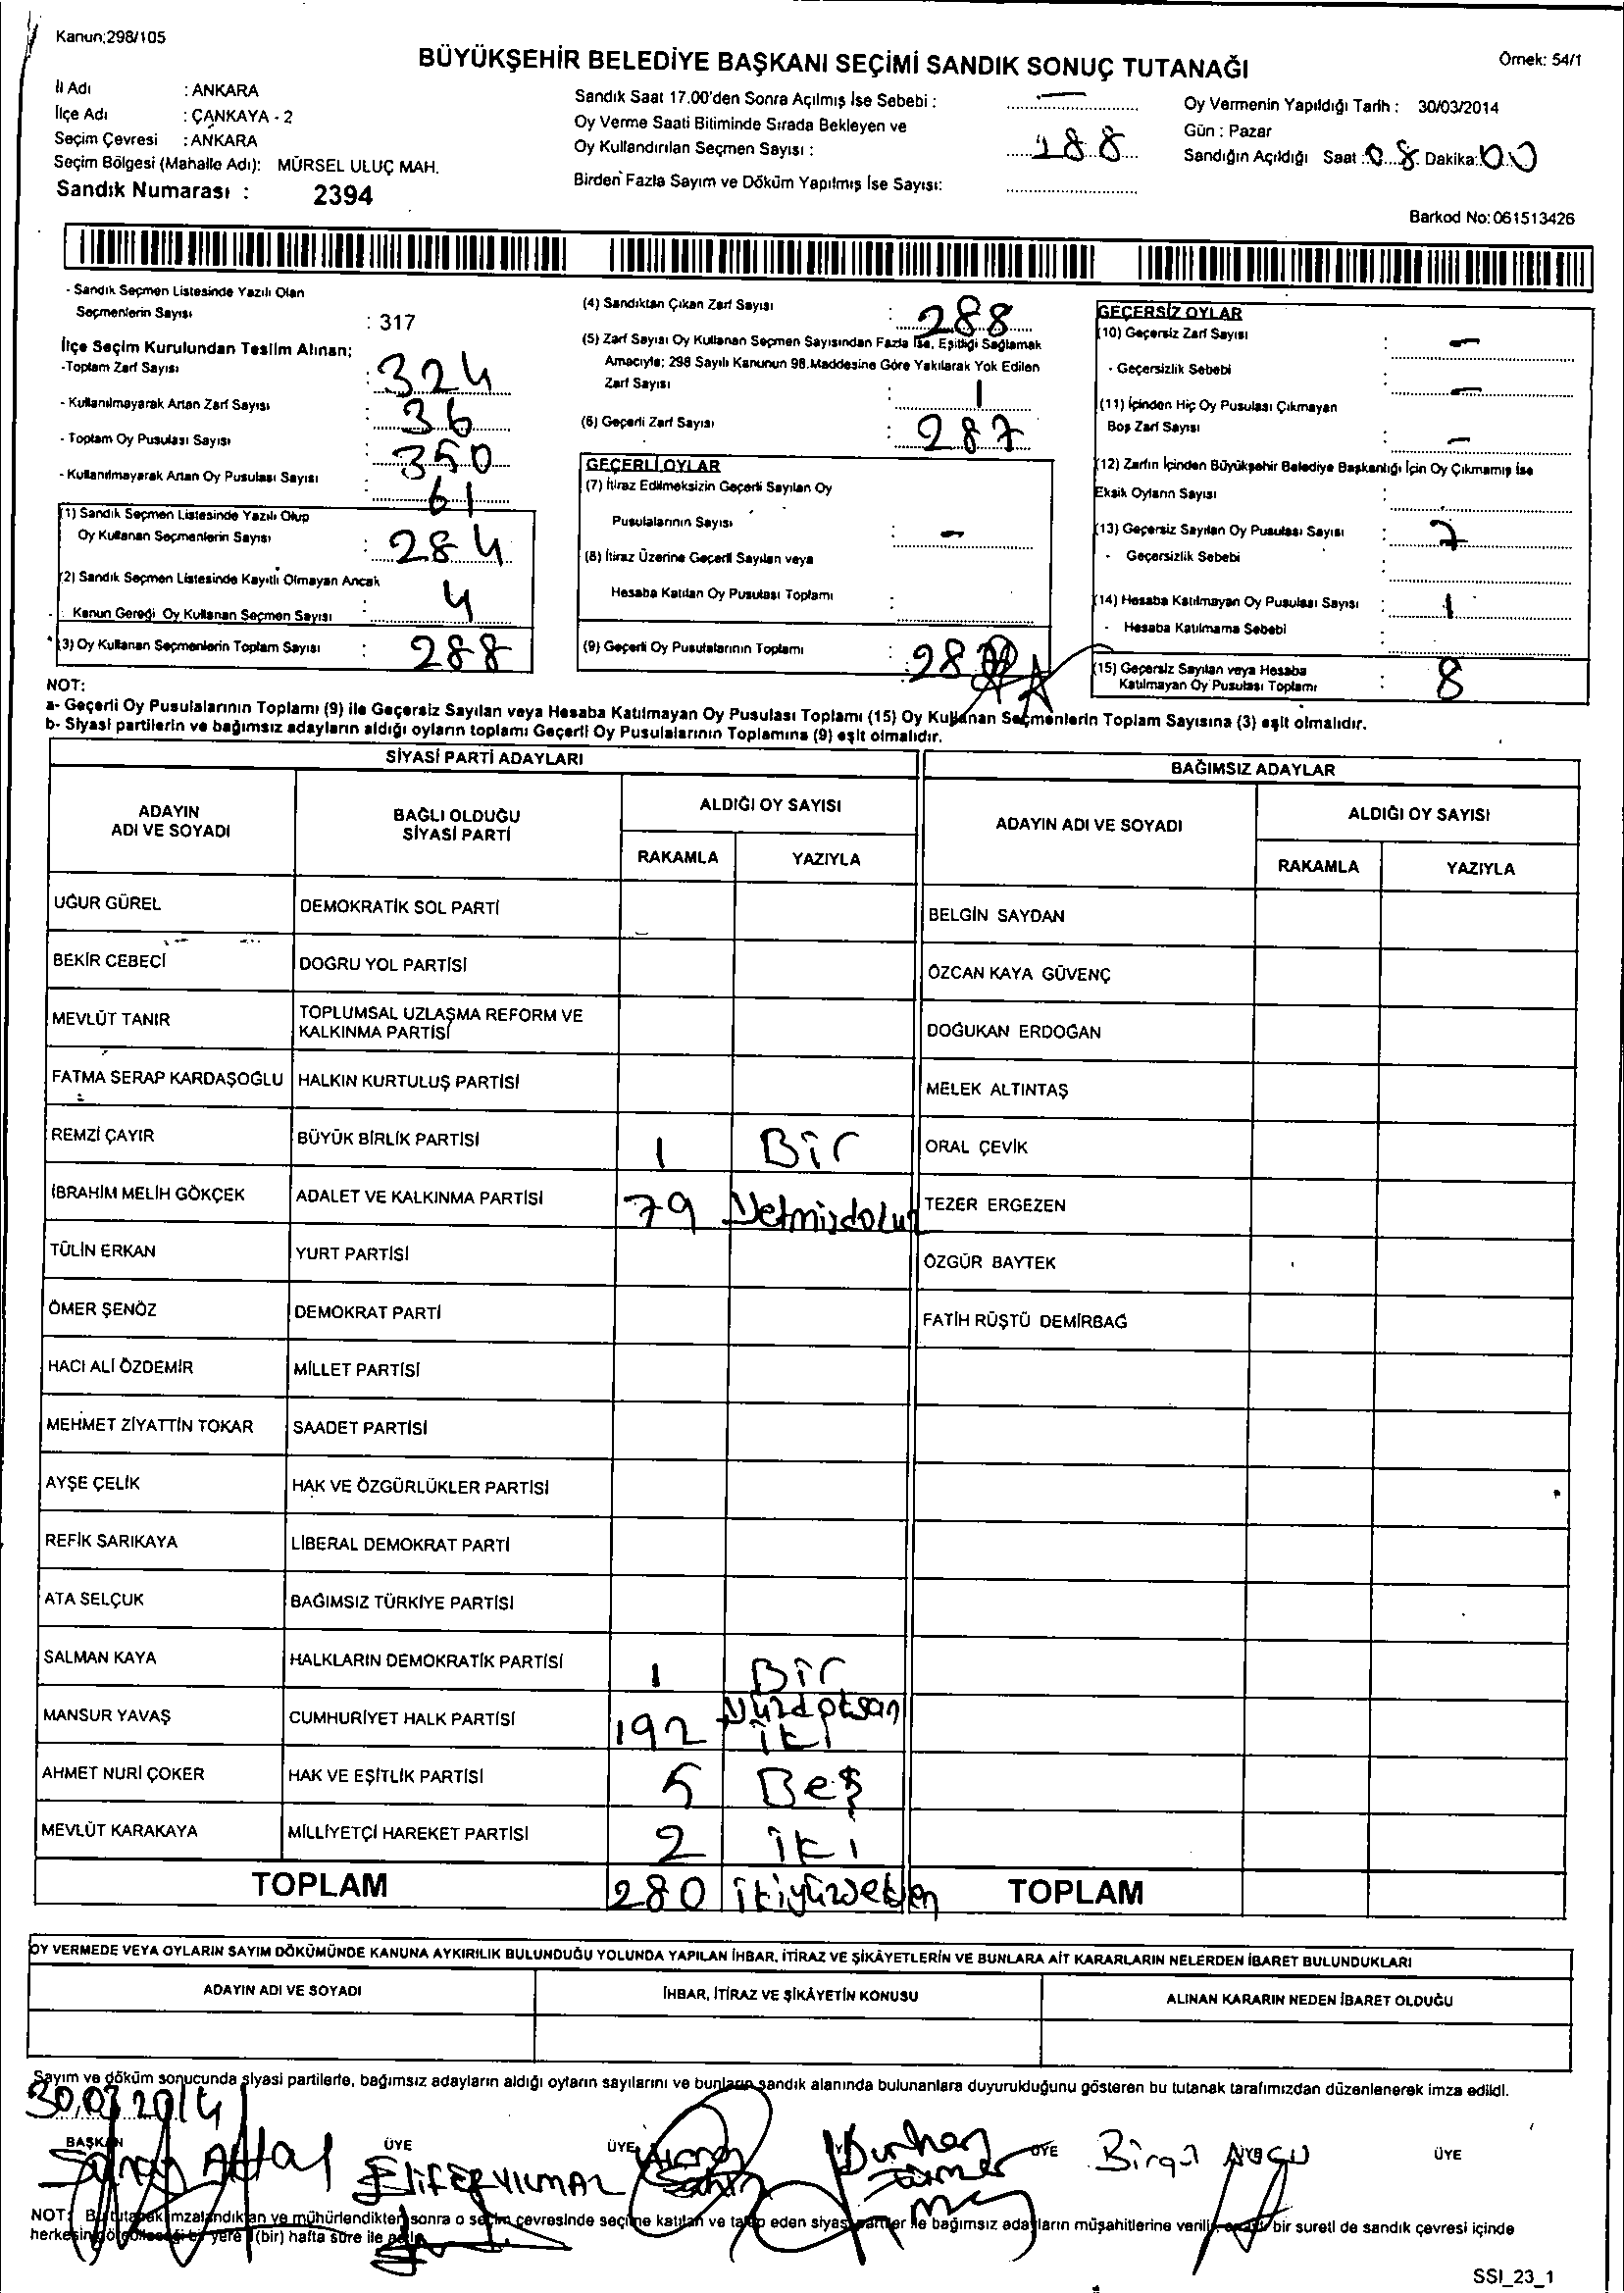 Kanun;298/105
BÜYÜKŞEHİR BELEDİYE BAŞKANI SEÇİMİ SANDIK SONUÇ TUTANAĞI
Örnek: 54/1
İl Adı : ANKARA
İlçe Adı : ÇANKAYA - 2
Seçim Çevresi : ANKARA
Seçim Bölgesi (Mahalle Adı): MÜRSEL ULUÇ MAH.
Sandık Numarası : 2394
Sandık Saat 17.00'den Sonra Açılmış İse Sebebi : —
Oy Verme Saati Bitiminde Sırada Bekleyen ve
Oy Kullandırılan Seçmen Sayısı : 288
Birden Fazla Sayım ve Döküm Yapılmış İse Sayısı:
Oy Vermenin Yapıldığı Tarih : 30/03/2014
Gün : Pazar
Sandığın Açıldığı Saat : 08 Dakika: 00
Barkod No: 061513426
- Sandık Seçmen Listesinde Yazılı Olan
Seçmenlerin Sayısı : 317
İlçe Seçim Kurulundan Teslim Alınan;
-Toplam Zarf Sayısı : 324
- Kullanılmayarak Artan Zarf Sayısı : 36
- Toplam Oy Pusulası Sayısı : 350
- Kullanılmayarak Artan Oy Pusulası Sayısı : 61
(1) Sandık Seçmen Listesinde Yazılı Olup
Oy Kullanan Seçmenlerin Sayısı : 284
(2) Sandık Seçmen Listesinde Kayıtlı Olmayan Ancak
Kanun Gereği Oy Kullanan Seçmen Sayısı : 4
(3) Oy Kullanan Seçmenlerin Toplam Sayısı : 288
(4) Sandıktan Çıkan Zarf Sayısı : 288
(5) Zarf Sayısı Oy Kullanan Seçmen Sayısından Fazla İse, Eşitliği Sağlamak
Amacıyla; 298 Sayılı Kanunun 98.Maddesine Göre Yakılarak Yok Edilen
Zarf Sayısı : 1
(6) Geçerli Zarf Sayısı : 287
GEÇERLİ OYLAR
(7) İtiraz Edilmeksizin Geçerli Sayılan Oy
Pusulalarının Sayısı : -
(8) İtiraz Üzerine Geçerli Sayılan veya
Hesaba Katılan Oy Pusulası Toplamı :
(9) Geçerli Oy Pusulalarının Toplamı : 28
GEÇERSİZ OYLAR
(10) Geçersiz Zarf Sayısı : -
- Geçersizlik Sebebi : -
(11) İçinden Hiç Oy Pusulası Çıkmayan
Boş Zarf Sayısı : -
(12) Zarfın İçinden Büyükşehir Belediye Başkanlığı İçin Oy Çıkmamış İse
Eksik Oyların Sayısı : -
(13) Geçersiz Sayılan Oy Pusulası Sayısı : 7
- Geçersizlik Sebebi :
(14) Hesaba Katılmayan Oy Pusulası Sayısı : 1
- Hesaba Katılmama Sebebi :
(15) Geçersiz Sayılan veya Hesaba
Katılmayan Oy Pusulası Toplamı : 8
NOT:
a- Geçerli Oy Pusulalarının Toplamı (9) ile Geçersiz Sayılan veya Hesaba Katılmayan Oy Pusulası Toplamı (15) Oy Kullanan Seçmenlerin Toplam Sayısına (3) eşit olmalıdır.
b- Siyasi partilerin ve bağımsız adayların aldığı oyların toplamı Geçerli Oy Pusulalarının Toplamına (9) eşit olmalıdır.
SİYASİ PARTİ ADAYLARI
ADAYIN ADI VE SOYADI
BAĞLI OLDUĞU SİYASİ PARTİ
ALDIĞI OY SAYISI
RAKAMLA YAZIYLA
UĞUR GÜREL DEMOKRATİK SOL PARTİ
BEKİR CEBECİ DOĞRU YOL PARTİSİ
MEVLÜT TANIR TOPLUMSAL UZLAŞMA REFORM VE
KALKINMA PARTİSİ
FATMA SERAP KARDAŞOĞLU HALKIN KURTULUŞ PARTİSİ
REMZİ ÇAYIR BÜYÜK BİRLİK PARTİSİ 1 Bir
İBRAHİM MELİH GÖKÇEK ADALET VE KALKINMA PARTİSİ 79 Yetmişdokuz
TÜLİN ERKAN YURT PARTİSİ
ÖMER ŞENÖZ DEMOKRAT PARTİ
HACI ALİ ÖZDEMİR MİLLET PARTİSİ
MEHMET ZİYATTİN TOKAR SAADET PARTİSİ
AYŞE ÇELİK HAK VE ÖZGÜRLÜKLER PARTİSİ
REFİK SARIKAYA LİBERAL DEMOKRAT PARTİ
ATA SELÇUK BAĞIMSIZ TÜRKİYE PARTİSİ
SALMAN KAYA HALKLARIN DEMOKRATİK PARTİSİ 1 Bir
MANSUR YAVAŞ CUMHURİYET HALK PARTİSİ 192 Yüzdoksan iki
AHMET NURİ ÇOKER HAK VE EŞİTLİK PARTİSİ 5 Beş
MEVLÜT KARAKAYA MİLLİYETÇİ HAREKET PARTİSİ 2 iki
TOPLAM 280 ikiyüzseksen
BAĞIMSIZ ADAYLAR
ADAYIN ADI VE SOYADI
ALDIĞI OY SAYISI
RAKAMLA YAZIYLA
BELGİN SAYDAN
ÖZCAN KAYA GÜVENÇ
DOĞUKAN ERDOĞAN
MELEK ALTINTAŞ
ORAL ÇEVİK
TEZER ERGEZEN
ÖZGÜR BAYTEK
FATİH RÜŞTÜ DEMİRBAĞ
TOPLAM
OY VERMEDE VEYA OYLARIN SAYIM DÖKÜMÜNDE KANUNA AYKIRILIK BULUNDUĞU YOLUNDA YAPILAN İHBAR, İTİRAZ VE ŞİKÂYETLERİN VE BUNLARA AİT KARARLARIN NELERDEN İBARET BULUNDUKLARI
ADAYIN ADI VE SOYADI İHBAR, İTİRAZ VE ŞİKÂYETİN KONUSU ALINAN KARARIN NEDEN İBARET OLDUĞU
Sayım ve döküm sonucunda siyasi partilerle, bağımsız adayların aldığı oyların sayılarını ve bunların sandık alanında bulunanlara duyurulduğunu gösteren bu tutanak tarafımızdan düzenlenerek imza edildi.
30.03.2014
BAŞKAN ÜYE ÜYE ÜYE ÜYE ÜYE
Elif ERYILMAZ Burhan Birgül
NOT: Bu tutanak imzalandıktan ve mühürlendikten sonra o seçim çevresinde seçime katılan ve talep eden siyasi partiler ile bağımsız adayların müşahitlerine verilir, bir sureti de sandık çevresi içinde
herkesin görebileceği bir yere 1 (bir) hafta süre ile asılır.
SSI_23_1